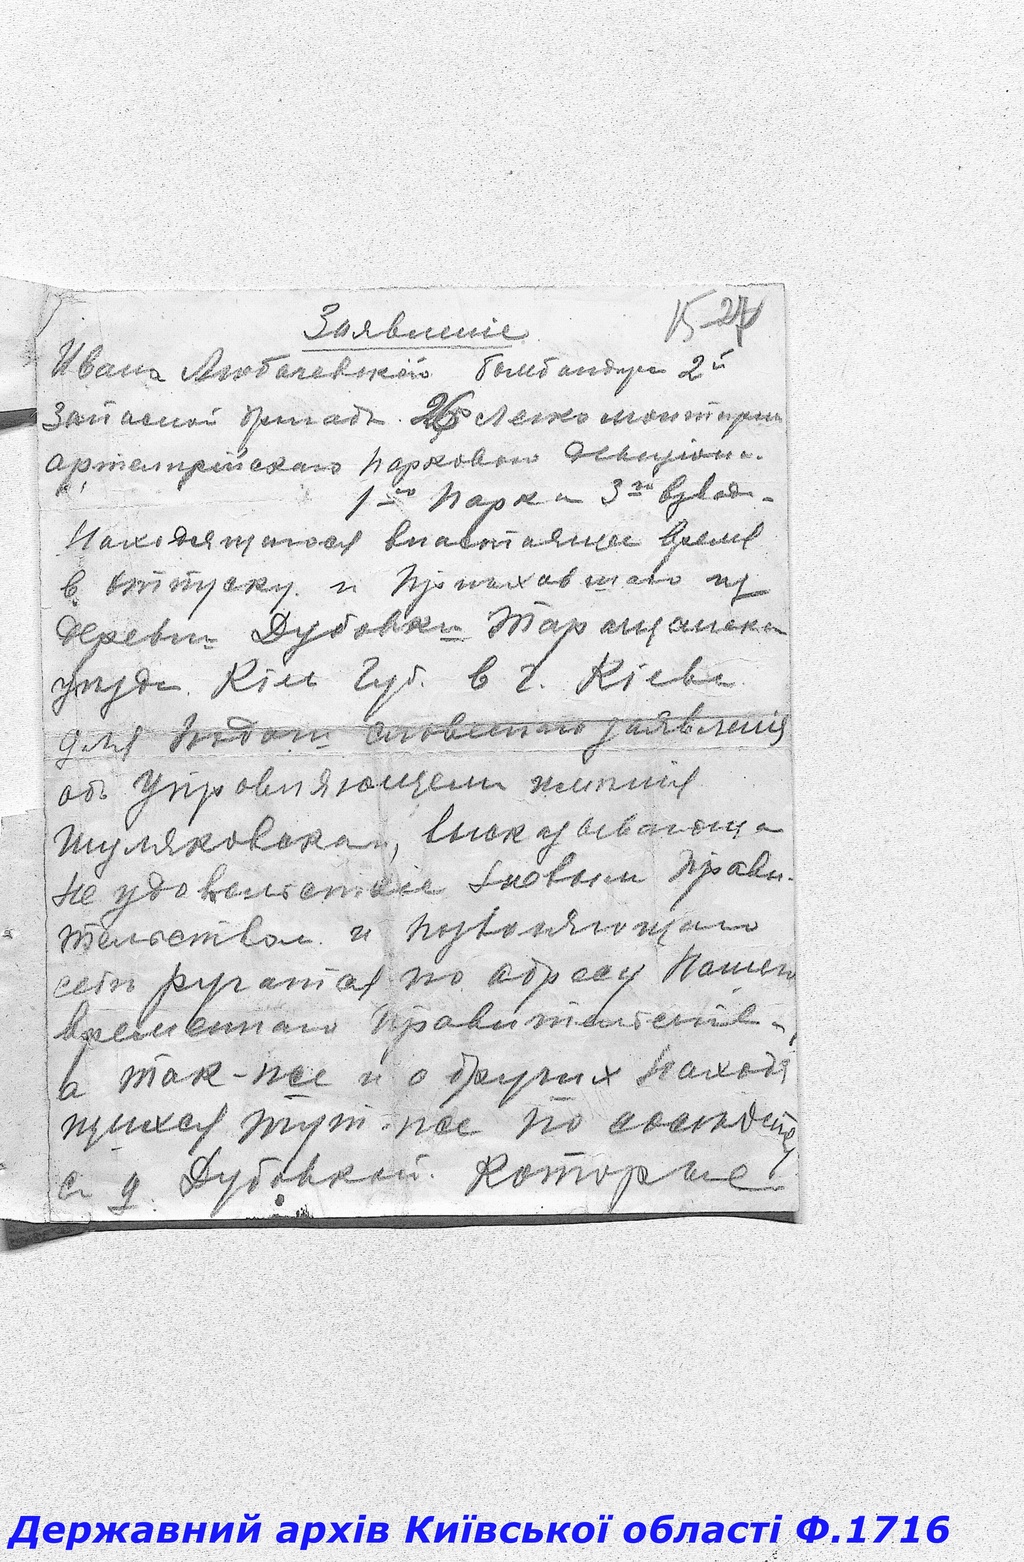 Заявленіе
15 27
Иванъ Любачевскій бомбандиръ 2й
Запасной бригады 26 Легко мортирна
артилерійскаго паркового Дивизіона
1го парка 3го взвода
Находящагося внастаящее время
в отпуску и Приехавшаго из
деревни Дубовки Таращанска
уезда Кіев Губ. в г. Кіевъ
для подачи словестнаго заявленія
объ Управляющем именія
Шуляковскаго, высказывающа
не удовольствіе новым Прави-
тельством и позволяющаго
себе ругатся по адресу Нашего
временнаго Правительства,
а так-же и о других находя
щихся тут-же по соседству
с д Дубовкой. Которые
Державний архів Київської області Ф.1716